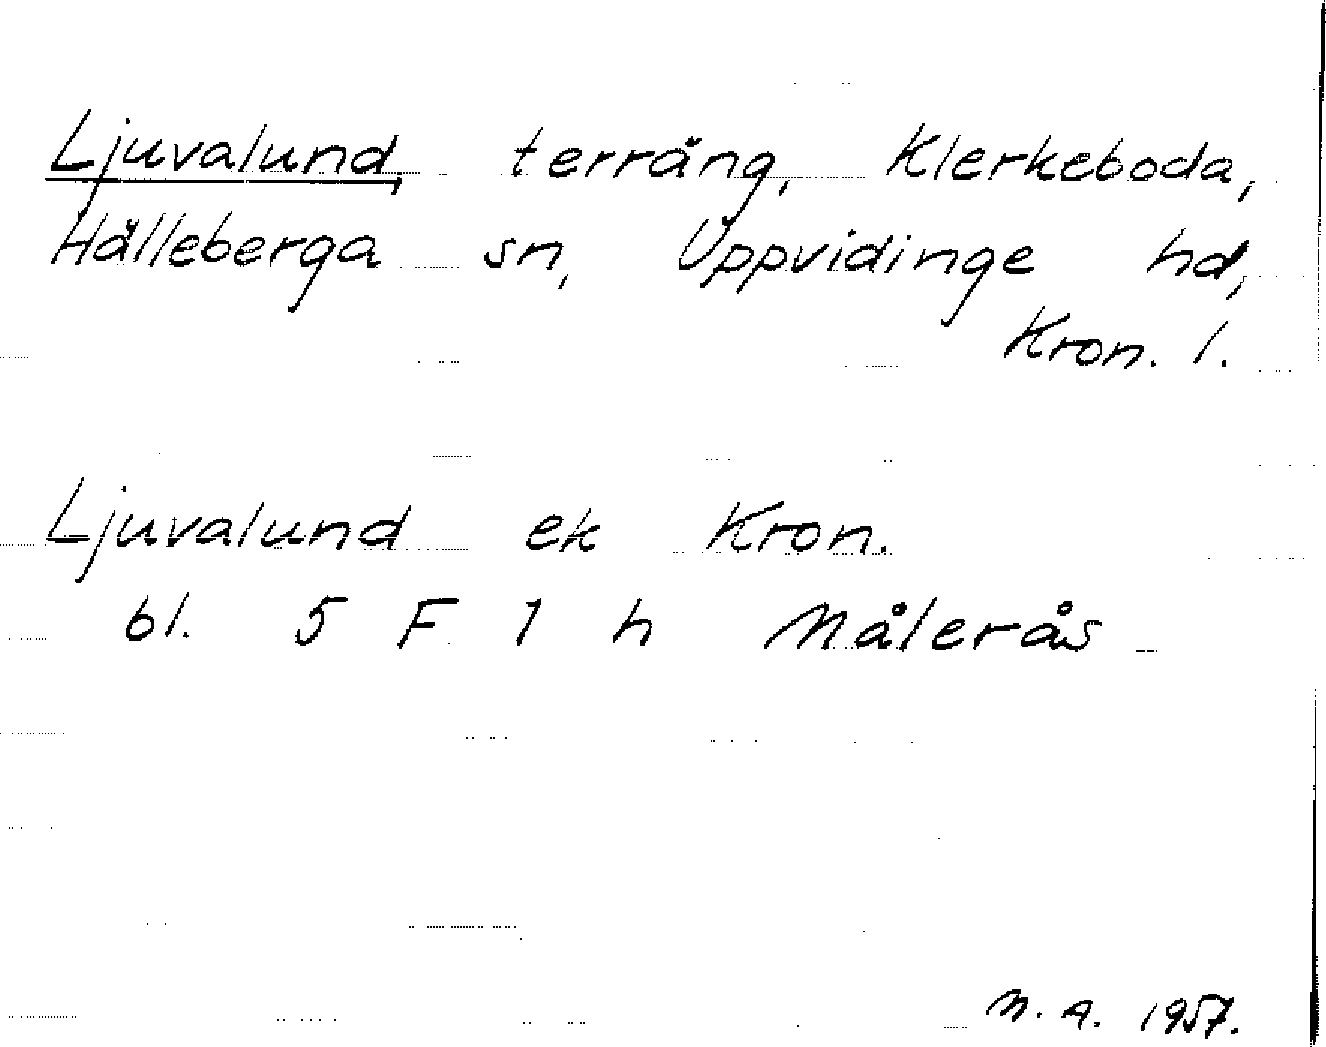 Ljuvalund, terräng, Klerkeboda,
Hälleberga sn, Uppvidinge hd,
Kron. l.
Ljuvalund ek Kron.
bl. 5 F 1 h Målerås
M. A. 1957.